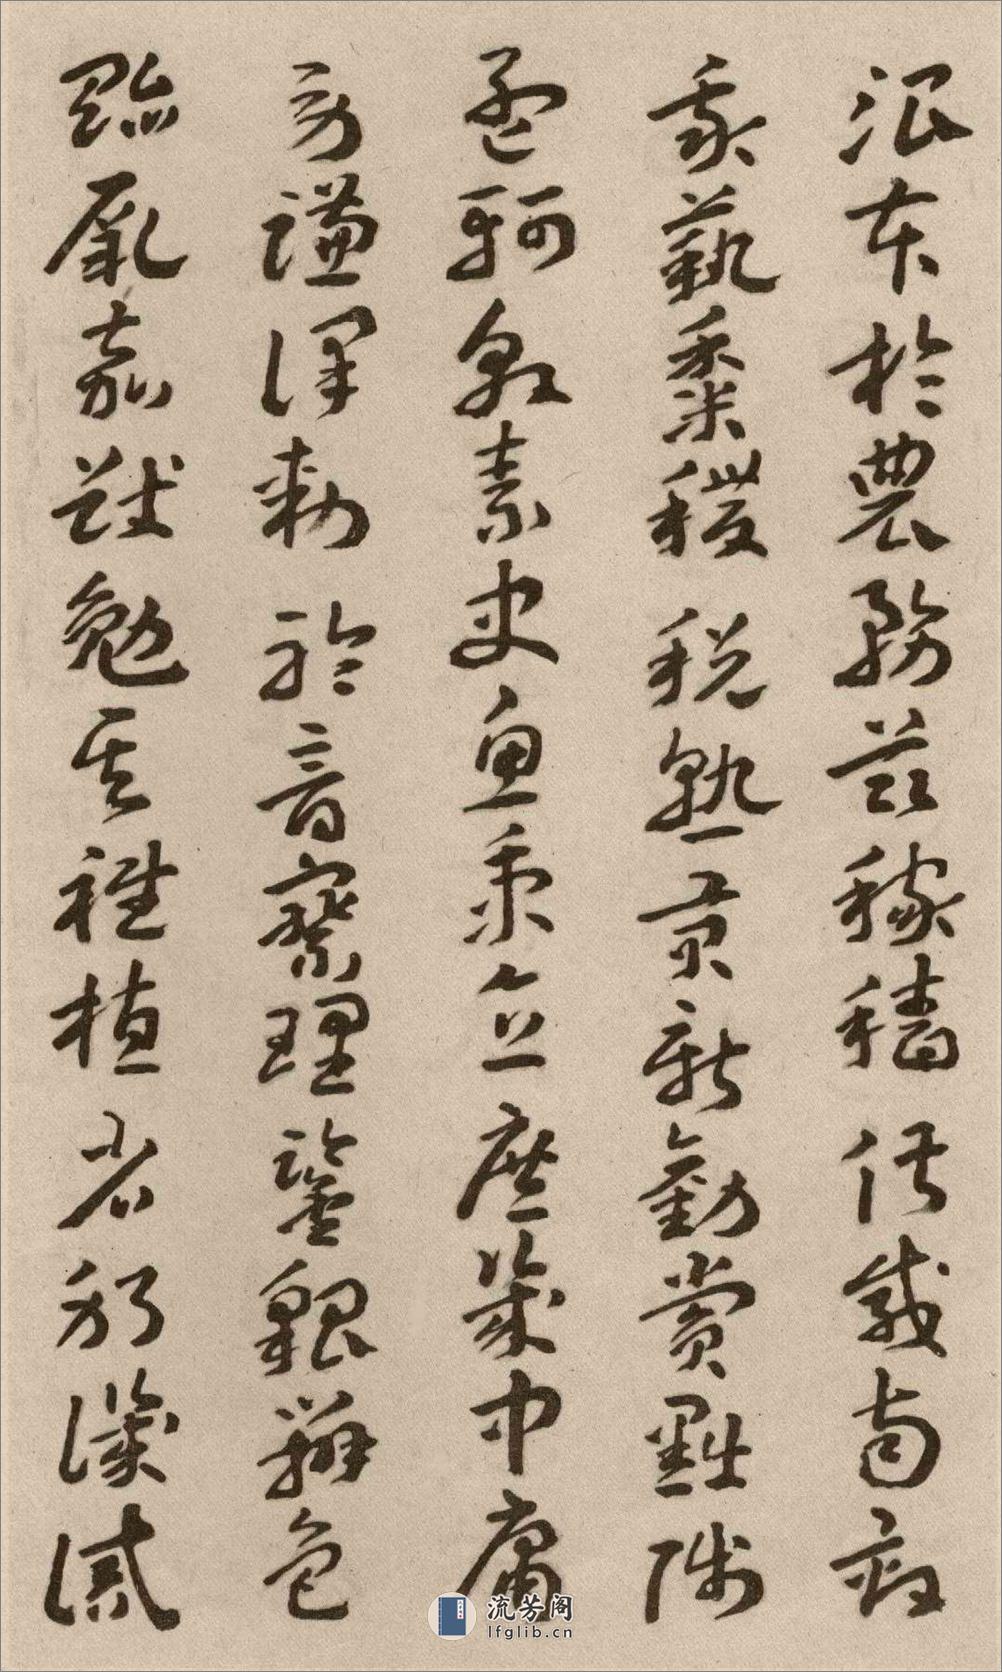 治本於農務茲稼穡俶載南畝
我藝黍稷稅熟貢新勸賞黜陟
孟軻敦素史魚秉直庶幾中庸
勞謙謹勅聆音察理鑒貌辨色
貽厥嘉猷勉其祗植省躬譏誡
流芳阁
lfglib.cn